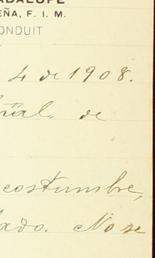 DALUPE
EÑA, F. I. M.
CONDUIT
4 de 1908.
ñal. de
costumbre,
ado. No se